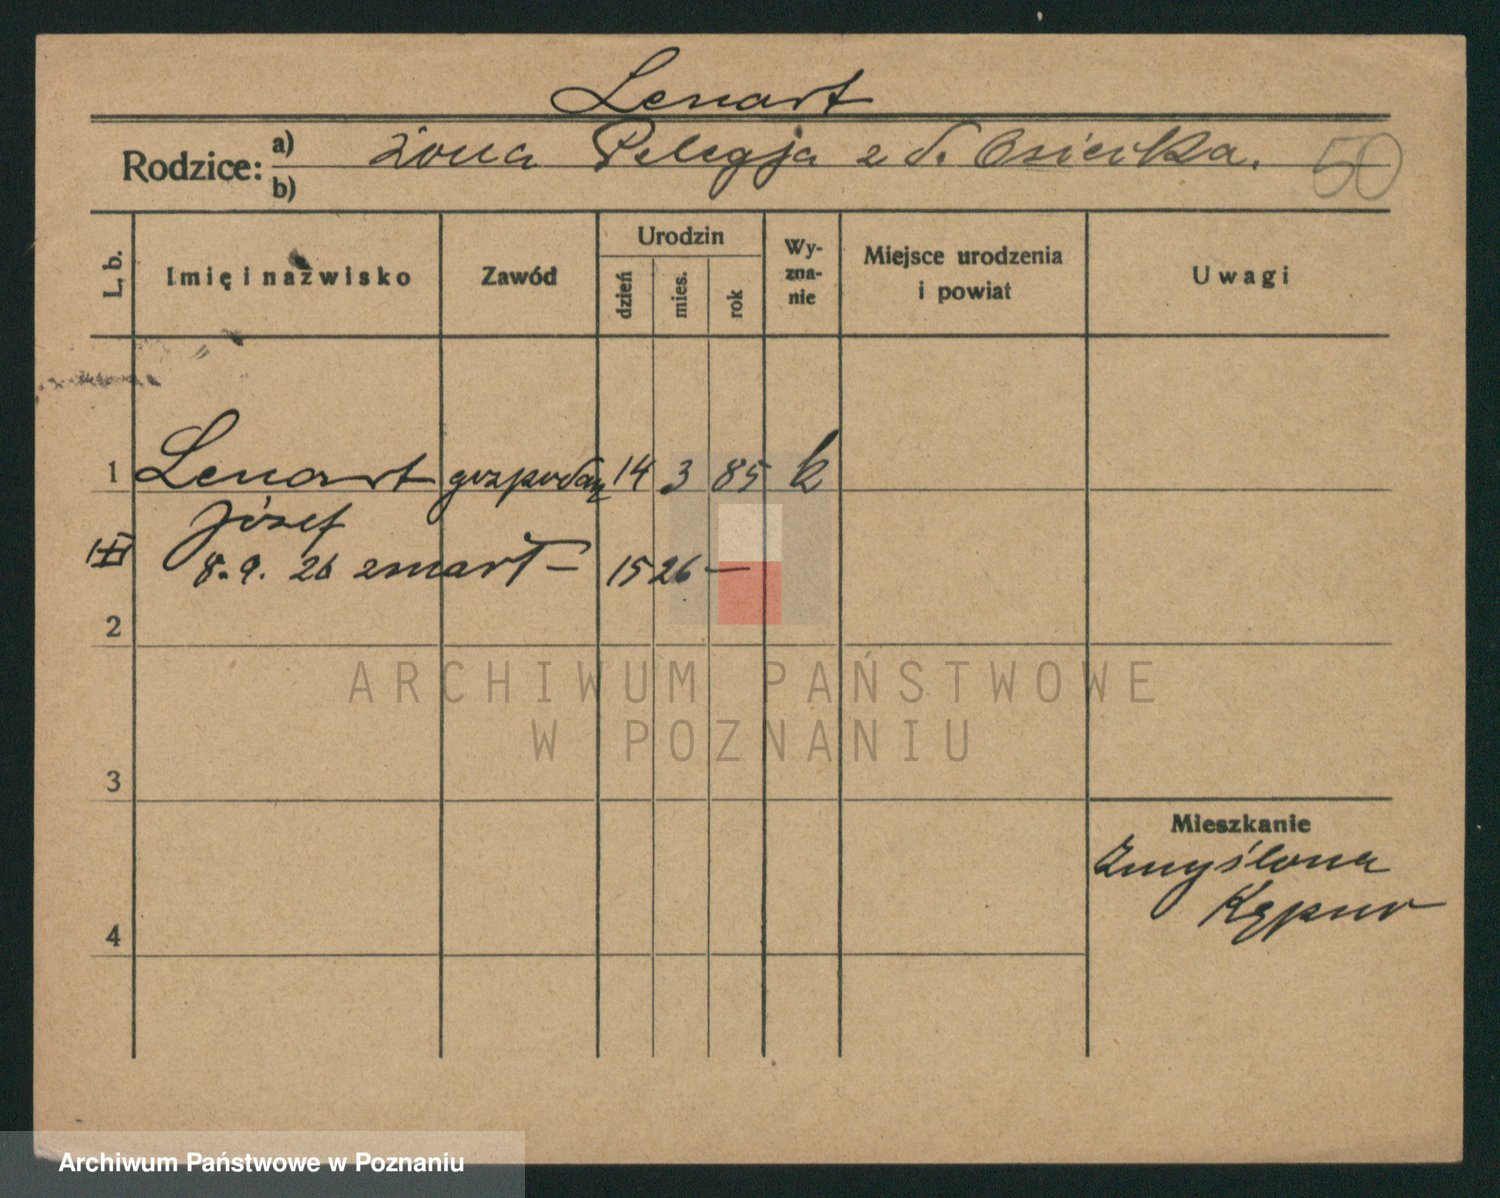 Lenart
Rodzice: a) żona Pelagja z d. Osiecka. 50
b)
L. b. Imię i nazwisko Zawód Urodzin dzień mies. rok Wy-zna-nie Miejsce urodzenia i powiat Uwagi
1 Lenart gospodarz 14 3 85 k
Józef
8. 9. 26 zmarł – 15 26 –
2
ARCHIWUM PAŃSTWOWE
W POZNANIU
3
Mieszkanie
Zmyślona
Kępno
4
Archiwum Państwowe w Poznaniu